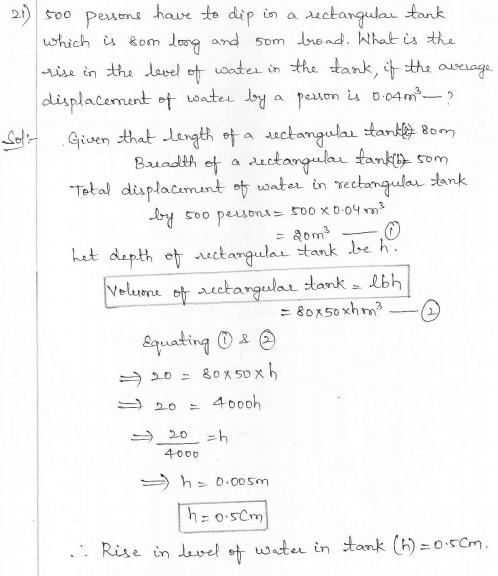 21) 500 persons have to dip in a rectangular tank
which is 80m long and 50m broad. What is the
rise in the level of water in the tank, if the average
displacement of water by a person is 0.04m³ — ?
Sol:- Given that length of a rectangular tank(l)= 80m
Breadth of a rectangular tank(b)= 50m
Total displacement of water in rectangular tank
by 500 persons = 500 x 0.04m³
= 20m³ — ①
Let depth of rectangular tank be h.
Volume of rectangular tank = lbh
= 80x50xhm³ — ②
Equating ① & ②
⟹ 20 = 80x50xh
⟹ 20 = 4000h
⟹ 20/4000 = h
⟹ h = 0.005m
h = 0.5Cm
∴ Rise in level of water in tank (h) = 0.5Cm.